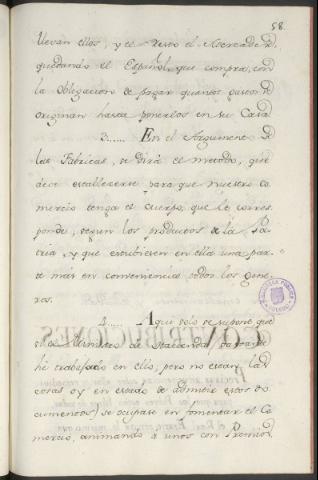 58.
llevan ellos, y el resto el Mercader,
quedando el Español, que compra, con
la obligacion de pagar quantos gastos se
originan hasta ponerlos en su Casa
3..... En el Argumento de
las Fabricas, se dirá el metodo, que
deve establecerse para que nuestro Co
mercio tenga el cuerpo, que le corres
ponde, segun los productos de la Pa
tria, y que estubiesen en ella una par
te más en conveniencia todos los gene
ros.
4..... Aqui solo se supone que
el Ministro de Hacienda
hé trabajado en ello, pero no eran las
cosas en estado de admitir estos do
cumentos) se ocupase en fomentar el Co
mercio, animando a unos con Premios,
BIBLIOTECA PUBLICA
TOLEDO